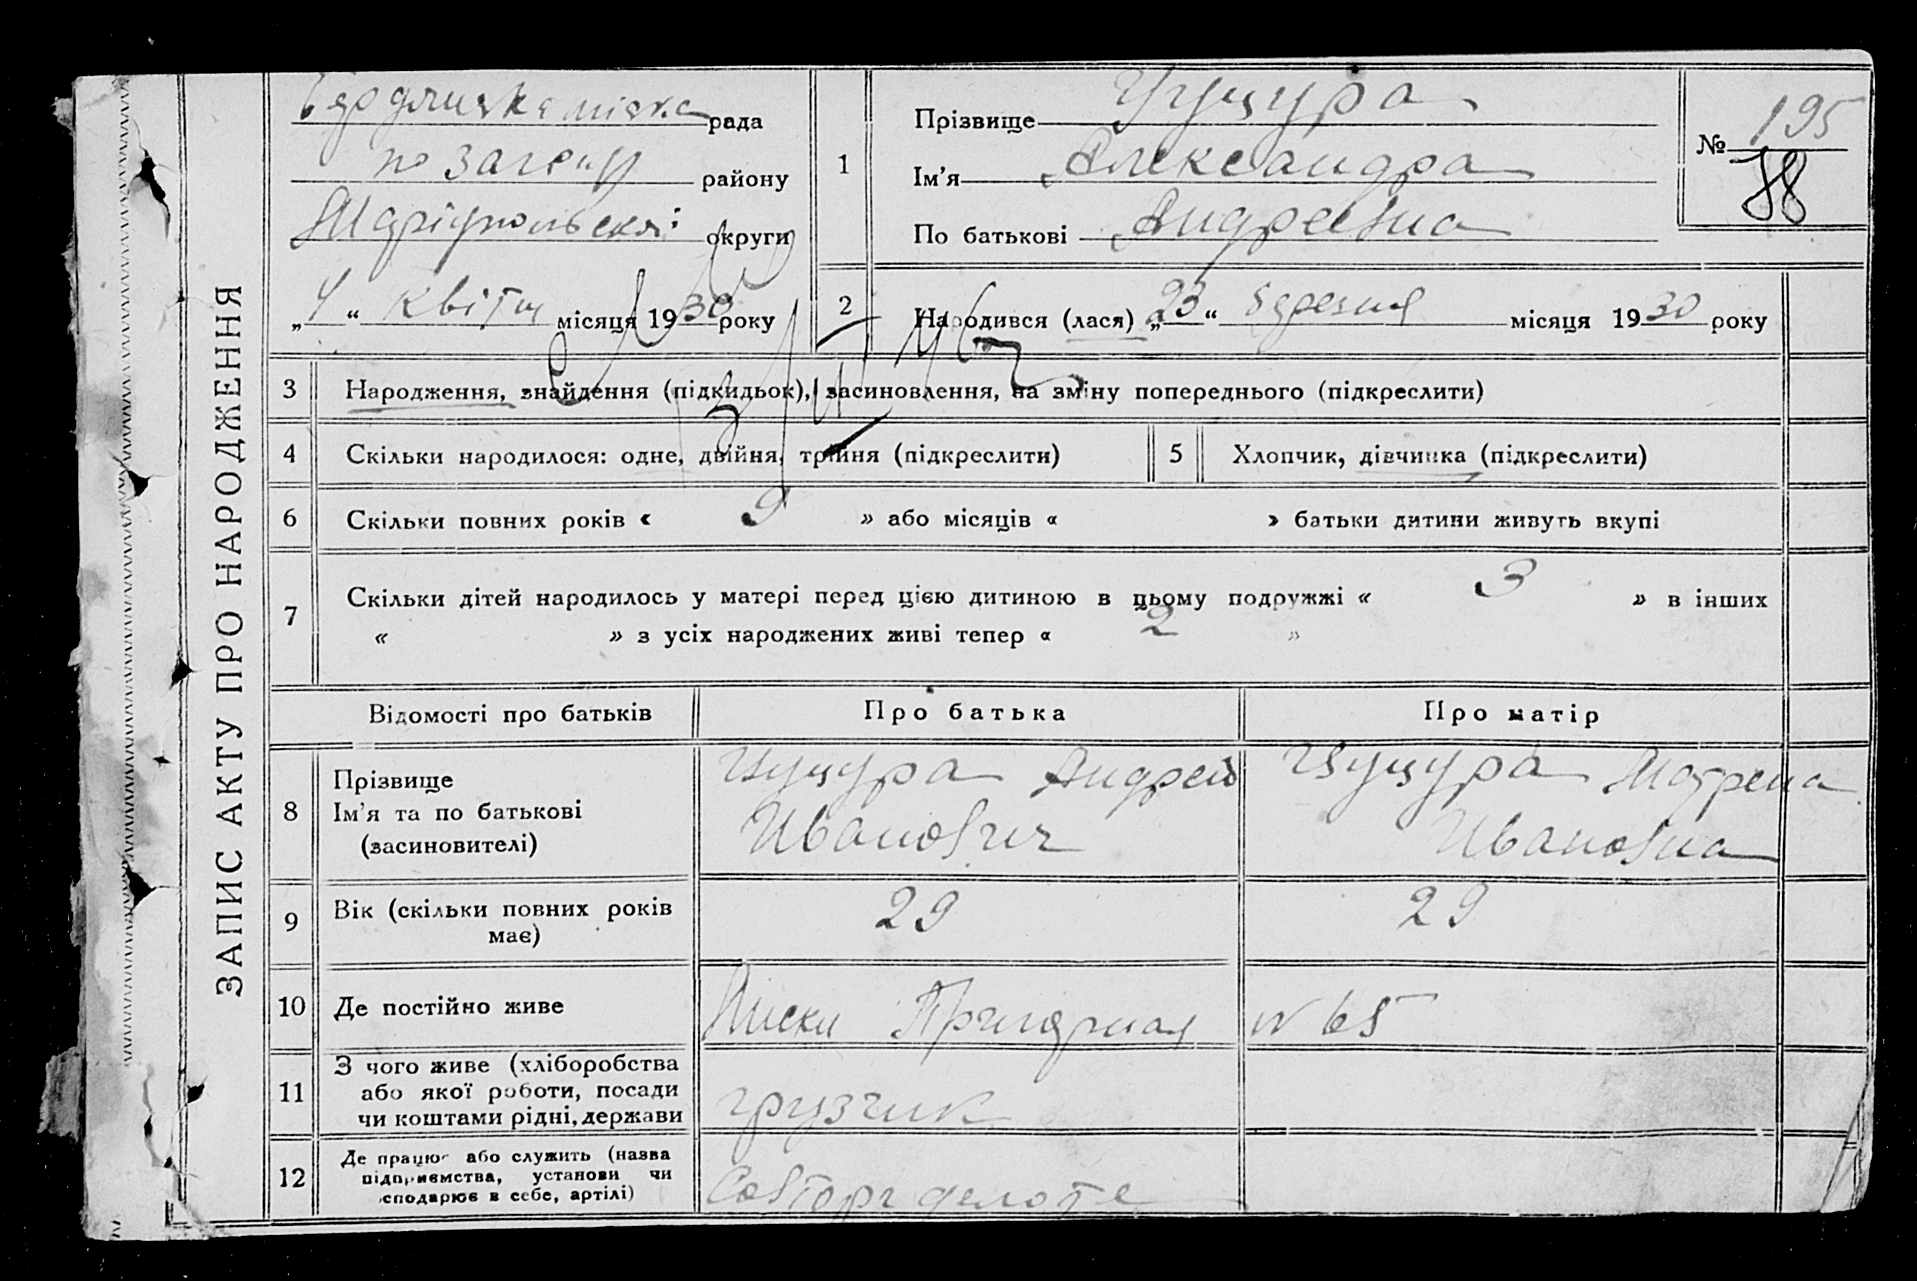 ЗАПИС АКТУ ПРО НАРОДЖЕННЯ
рада
по загсу району
Маріупольської округи
„4“ квітня місяця 1930 року
1
Прізвище Цуцура
Ім'я Александра
По батькові Андреевна
№ 195
78
2
Народився (лася) „23“ березня місяця 1930 року
3 Народження, знайдення (підкидьок), засиновлення, на зміну попереднього (підкреслити)
4 Скільки народилося: одне, двійня, трійня (підкреслити)
5 Хлопчик, дівчинка (підкреслити)
6 Скільки повних років « 9 » або місяців « » батьки дитини живуть вкупі
7 Скільки дітей народилось у матері перед цією дитиною в цьому подружжі « 3 » в інших
« » з усіх народжених живі тепер « 2 »
Відомості про батьків Про батька Про матір
8 Прізвище
Ім'я та по батькові
(засиновителі)
Цуцура Андрей
Иванович
Цуцура Матрена
Ивановна
9 Вік (скільки повних років
має)
29
29
10 Де постійно живе
Лиски Пригорная № 65
11 З чого живе (хліборобства
або якої роботи, посади
чи коштами рідні, держави
грузчик
12 Де працює або служить (назва
підприємства, установи чи
сподарює в себе, артілі)
Совторг